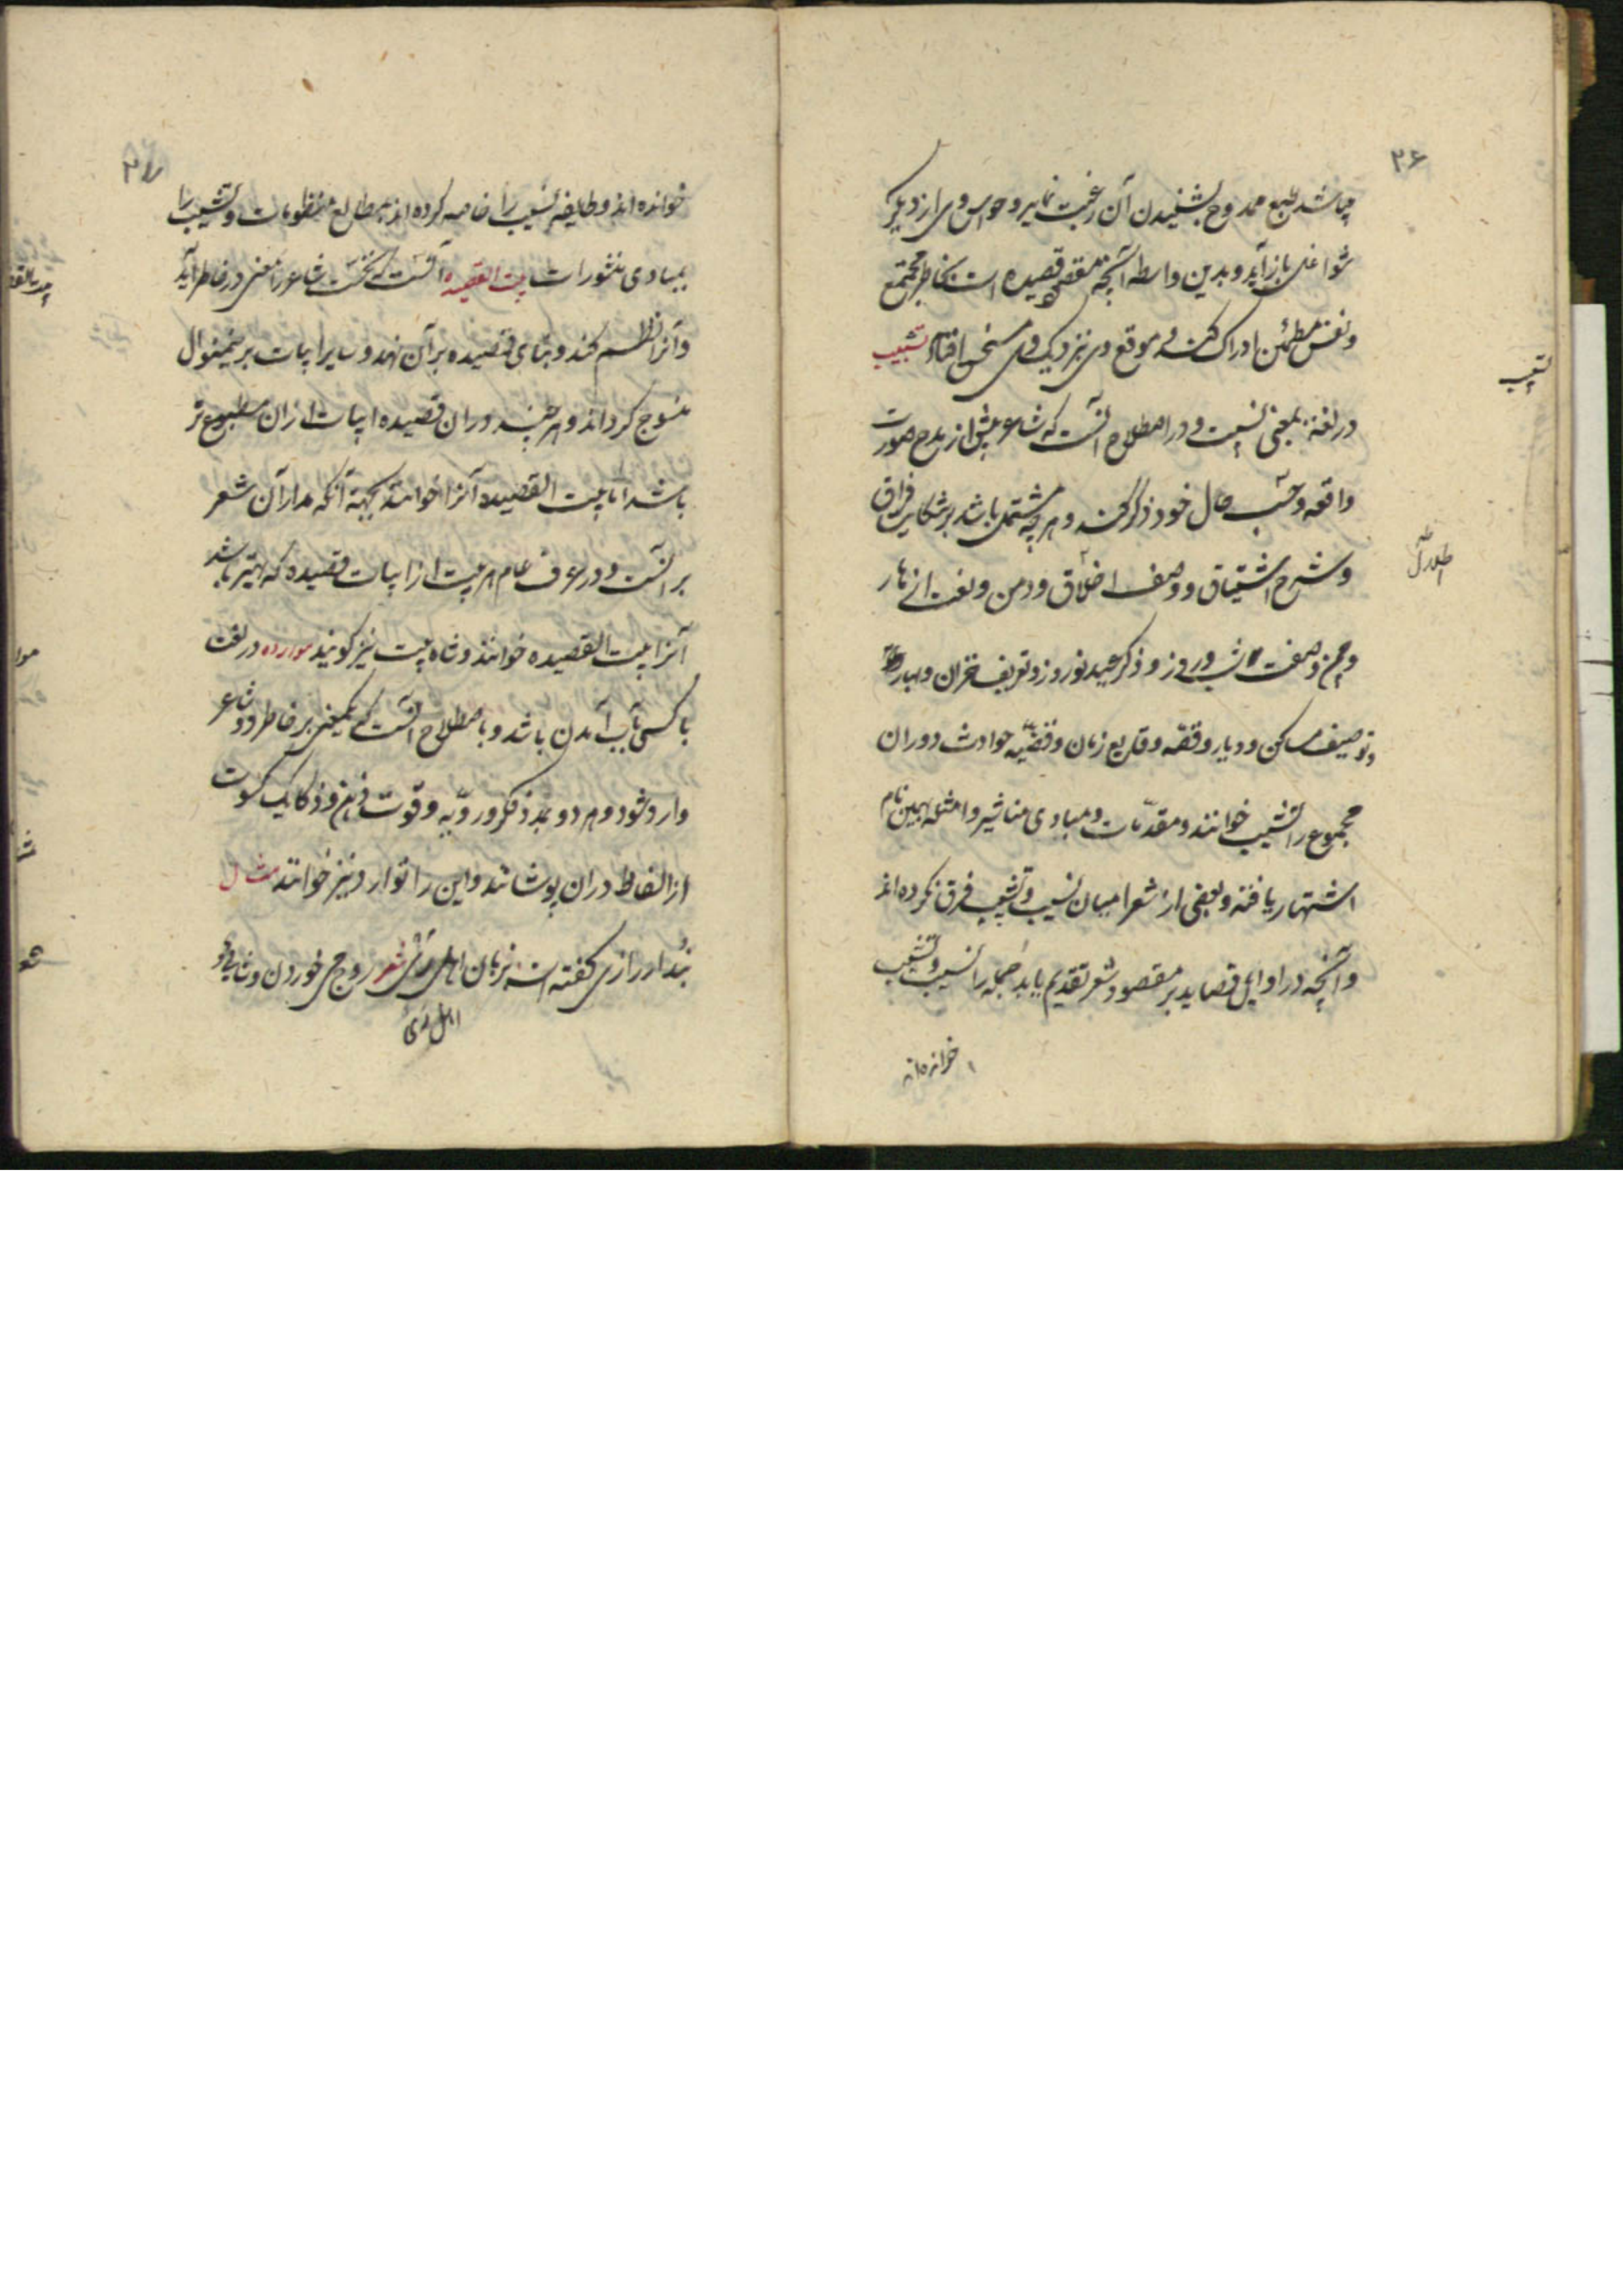 ۳۶
چه باشد طبع ممدوح بشنیدن آن رغبت نماید و حواس وی از دیگر
شواغل باز آید و بدین واسطه آنچه مقصود قصیده است بخاطر مجتمع
و نفس مطمئن ادراک کند و موقع وی نزدیک وی مستحسن افتد تشبیب
در لغة بمعنی نسیبست و در اصطلاح آنست که شاعر پیش از مدح صورت
واقعه و حسب حال خود ذکر کند و هر چه مشتمل باشد بر شکایت فراق
و شرح اشتیاق و وصف اطلال و دمن و نعت ازهار
و چمن و صفت شب و روز و ذکر عید نوروز و تعریف خزان و بهار
و توصیف مساکن و دیار و قصّه وقایع زمان و قضیّه حوادث دوران
مجموع را تشبیب خوانند و مقدّمات و مبادی مناشیر و امثله بهمین نام
اشتهار یافته و بعضی از شعرا میان نسیب و تشبیب فرق نکرده اند
و آنچه در اوایل قصاید بر مقصود شعر تقدیم یابد جمله را نسیب و تشبیب
خوانده اند
تشبیب
اطلال
خوانده اند و طایفه نسیب را خاصه کرده اند بمطالع منظومات و تشبیب را
بمبادی منثورات بیت القصیده آنست که نخست شاعر را معنی در خاطر آید
و آنرا نظم کند و بنای قصیده بر آن نهد و سایر ابیات بر ینمنوال
منسوج گرداند و هر چند در ان قصیده ابیات از ان مطبوع تر
باشد اما بیت القصیده آنرا خوانند بجهة آنکه مدار آن شعر
بر آنست و در عرف عام هر بیت از ابیات قصیده که بهتر باشد
آنرا بیت القصیده خوانند و شاه بیت نیز گویند موارده در لغت
با کسی بآب آمدن باشد و باصطلاح آنست که یکمعنی بر خاطر دو شاعر
وارد شود و هر دو بمدد فکر و رویّه و قوت ذهن و ذکا یک کسوت
از الفاظ در ان پوشانند و این را توارد نیز خوانند مثال
بندار رازی گفته است بزبان اهل ری شعر
اهل ری